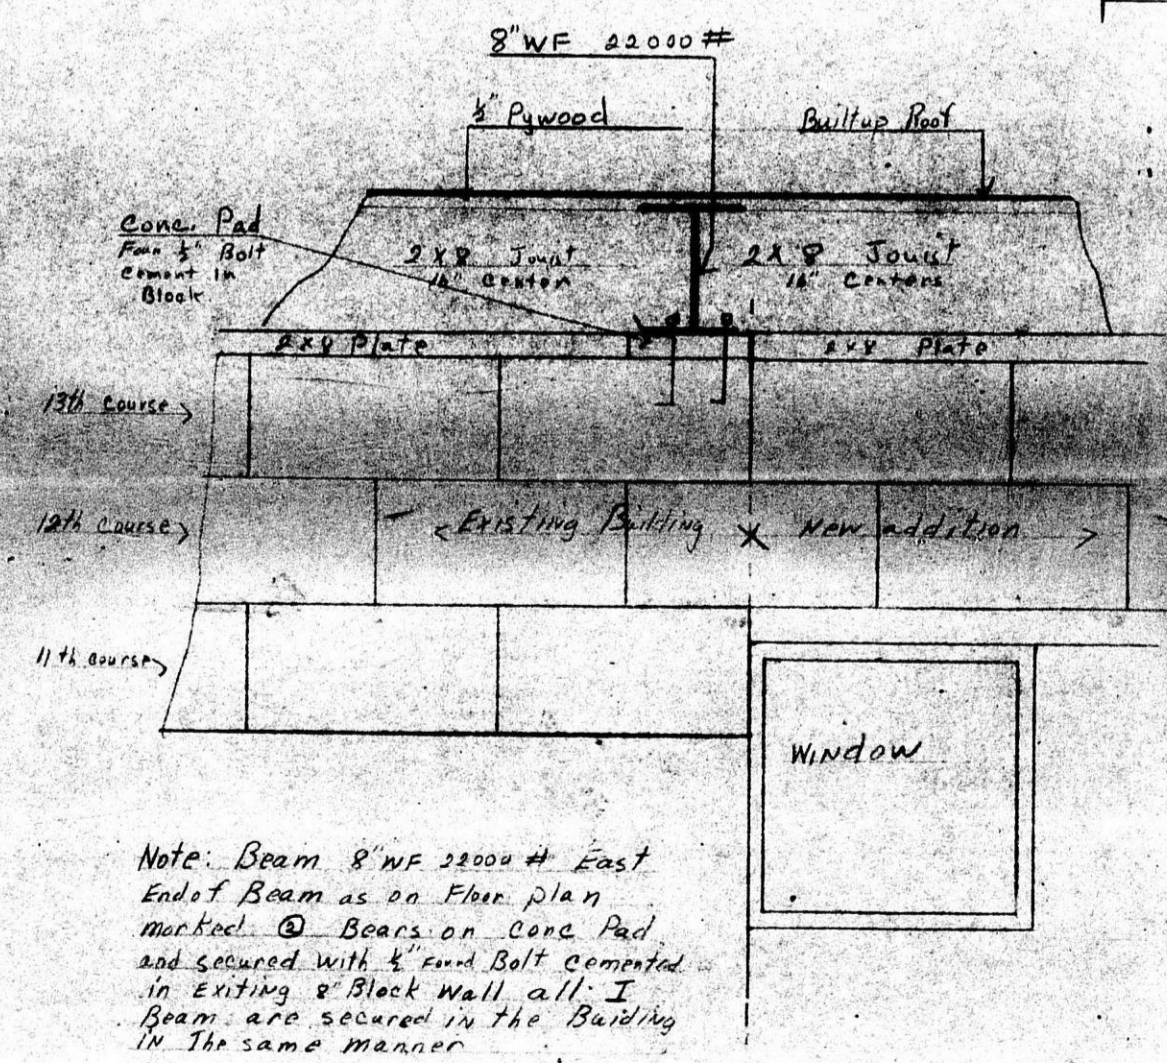 8" WF 22000 #
½" Pywood
Builtup Roof
Conc. Pad
Four ½" Bolt
Cement in
Block
2 X 8 Jouist
16" Center
2 X 8 Jouist
16" Centers
2 x 8 Plate
2 x 8 Plate
13th course
12th course
< Existing Building X New addition >
11th course
WINdow
Note: Beam 8" WF 22000 # East
End of Beam as on Floor plan
marked ② Bears on Conc Pad
and secured with ½" Bolt cemented
in Exiting 8" Block Wall all I
Beam are secured in the Buiding
in The same manner